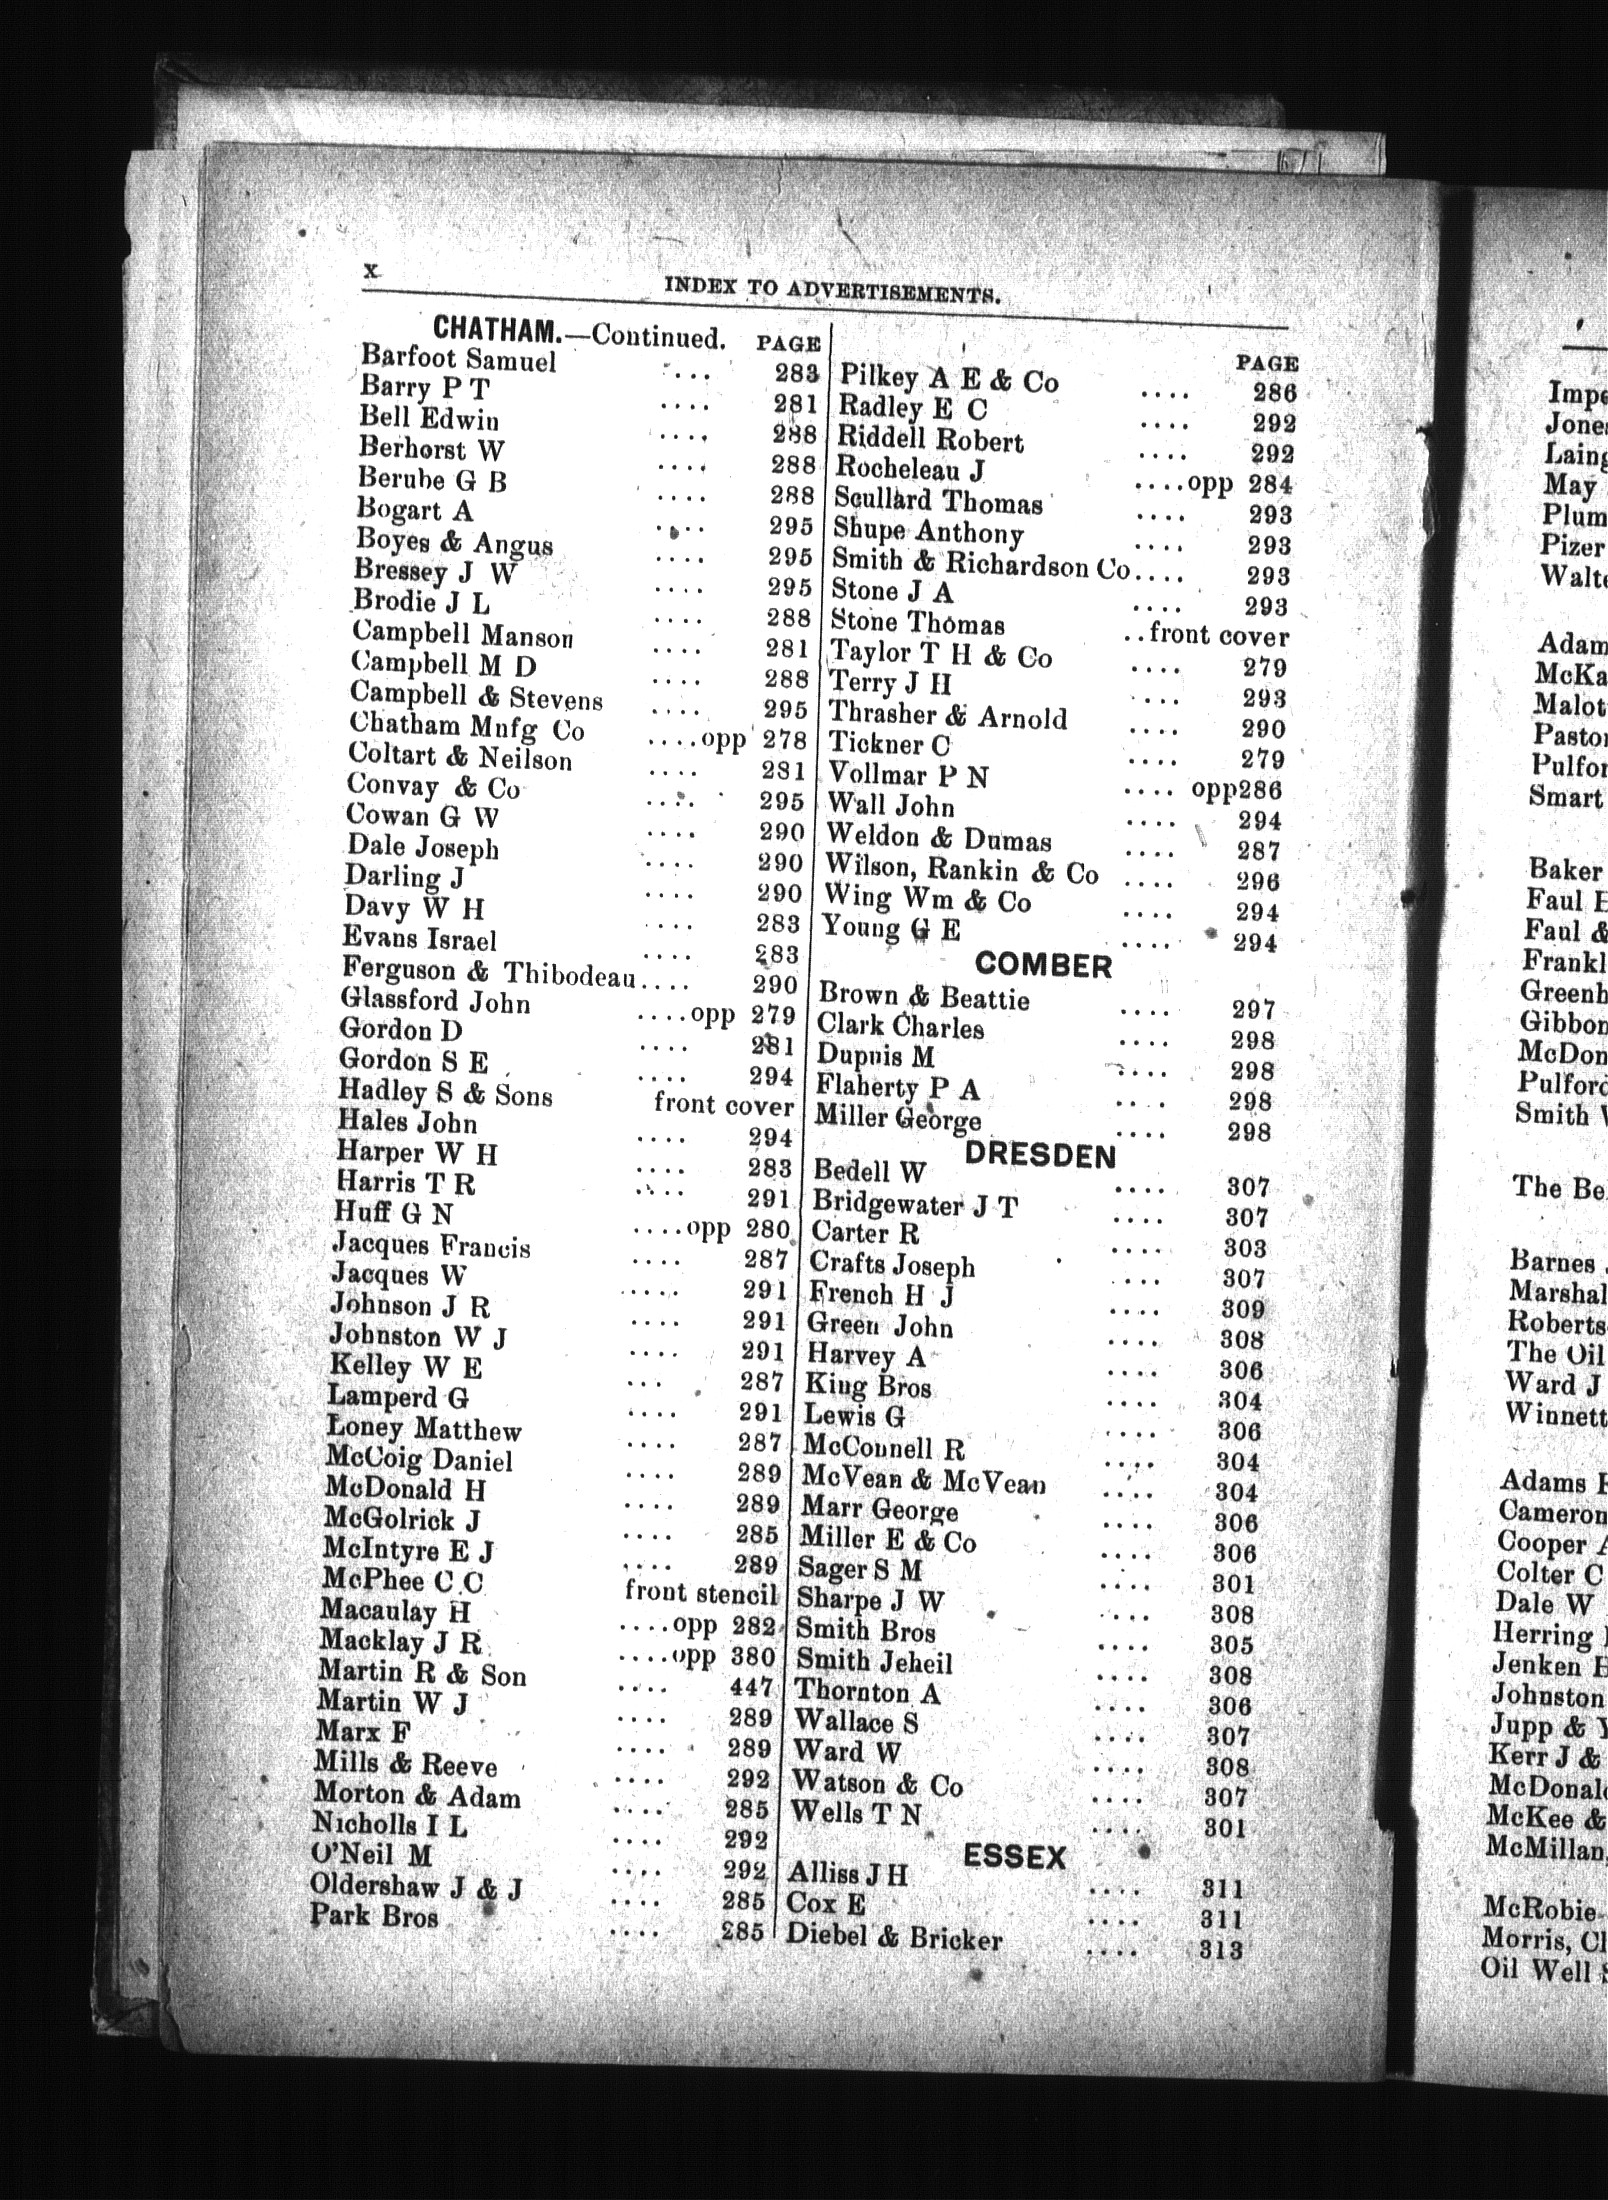 x
INDEX TO ADVERTISEMENTS.
CHATHAM.—Continued. PAGE
Barfoot Samuel .... 283
Barry P T .... 281
Bell Edwin .... 288
Berhorst W .... 288
Berube G B .... 288
Bogart A .... 295
Boyes & Angus .... 295
Bressey J W .... 295
Brodie J L .... 288
Campbell Manson .... 281
Campbell M D .... 288
Campbell & Stevens .... 295
Chatham Mnfg Co ....opp 278
Coltart & Neilson .... 281
Convay & Co .... 295
Cowan G W .... 290
Dale Joseph .... 290
Darling J .... 290
Davy W H .... 283
Evans Israel .... 283
Ferguson & Thibodeau.... 290
Glassford John ....opp 279
Gordon D .... 281
Gordon S E .... 294
Hadley S & Sons front cover
Hales John .... 294
Harper W H .... 283
Harris T R .... 291
Huff G N ....opp 280
Jacques Francis .... 287
Jacques W .... 291
Johnson J R .... 291
Johnston W J .... 291
Kelley W E ... 287
Lamperd G .... 291
Loney Matthew .... 287
McCoig Daniel .... 289
McDonald H .... 289
McGolrick J .... 285
McIntyre E J .... 289
McPhee C C front stencil
Macaulay H ....opp 282
Macklay J R ....opp 380
Martin R & Son .... 447
Martin W J .... 289
Marx F .... 289
Mills & Reeve .... 292
Morton & Adam .... 285
Nicholls I L .... 292
O'Neil M .... 292
Oldershaw J & J .... 285
Park Bros .... 285
PAGE
Pilkey A E & Co .... 286
Radley E C .... 292
Riddell Robert .... 292
Rocheleau J ....opp 284
Scullard Thomas .... 293
Shupe Anthony .... 293
Smith & Richardson Co.... 293
Stone J A .... 293
Stone Thomas ..front cover
Taylor T H & Co .... 279
Terry J H .... 293
Thrasher & Arnold .... 290
Tickner C .... 279
Vollmar P N .... opp286
Wall John .... 294
Weldon & Dumas .... 287
Wilson, Rankin & Co .... 296
Wing Wm & Co .... 294
Young G E .... 294
COMBER
Brown & Beattie .... 297
Clark Charles .... 298
Dupuis M .... 298
Flaherty P A .... 298
Miller George .... 298
DRESDEN
Bedell W .... 307
Bridgewater J T .... 307
Carter R .... 303
Crafts Joseph .... 307
French H J .... 309
Green John .... 308
Harvey A .... 306
King Bros .... 304
Lewis G .... 306
McConnell R .... 304
McVean & McVean .... 304
Marr George .... 306
Miller E & Co .... 306
Sager S M .... 301
Sharpe J W .... 308
Smith Bros .... 305
Smith Jeheil .... 308
Thornton A .... 306
Wallace S .... 307
Ward W .... 308
Watson & Co .... 307
Wells T N .... 301
ESSEX
Alliss J H .... 311
Cox E .... 311
Diebel & Bricker .... 313
Impe
Jones
Laing
May
Plum
Pizer
Walte
Adam
McKa
Malot
Pastor
Pulfor
Smart
Baker
Faul
Faul &
Frankl
Greenh
Gibbon
McDon
Pulford
Smith
The Be
Barnes
Marshal
Roberts
The Oil
Ward J
Winnett
Adams
Cameron
Cooper
Colter C
Dale W
Herring
Jenken
Johnston
Jupp &
Kerr J &
McDonald
McKee &
McMillan,
McRobie
Morris, Cl
Oil Well